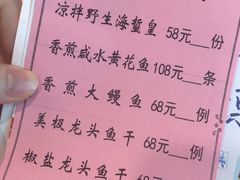 凉拌野生海蜇皇 58元__份
香煎咸水黄花鱼108元__条
香煎大鳗鱼 68元__例
美极龙头鱼干 68元__例
椒盐龙头鱼干 68元__例